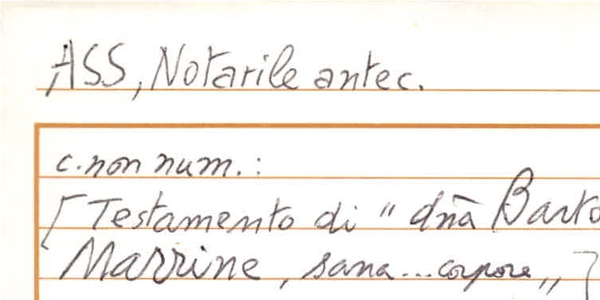 ASS, Notarile antec.
c. non num.:
[Testamento di "dn̄a Barto
Marrine, sana...corpore„]